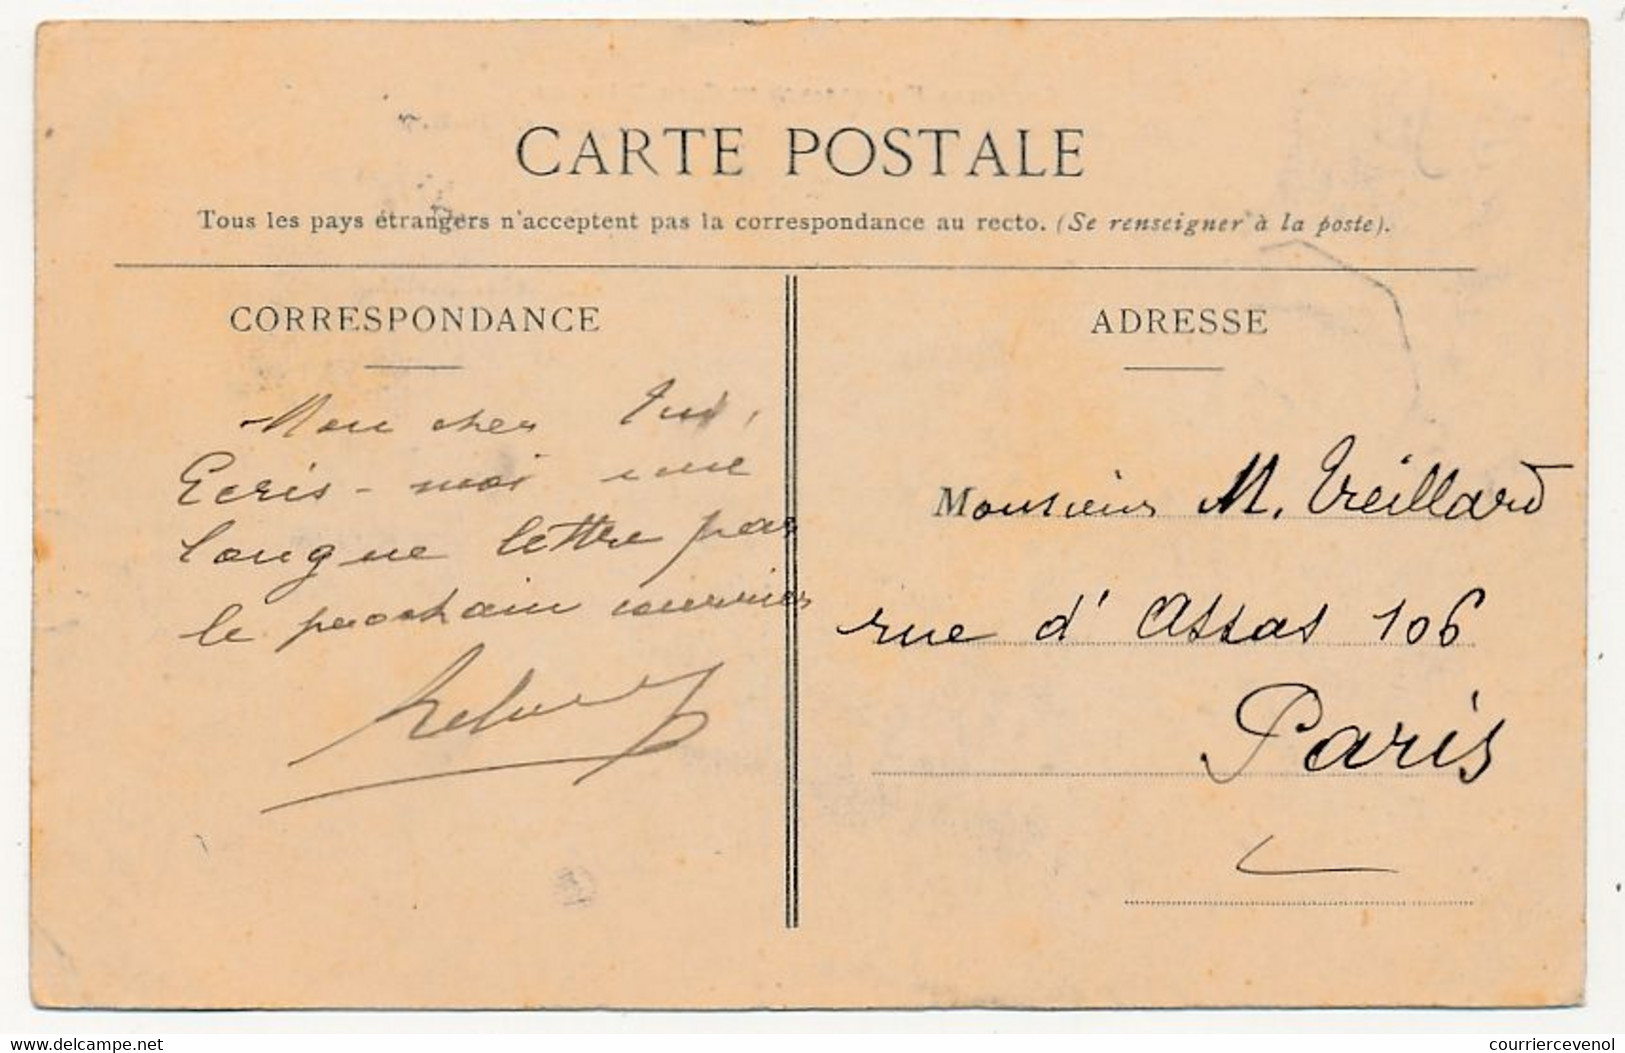 CARTE POSTALE
Tous les pays étrangers n'acceptent pas la correspondance au recto. (Se renseigner à la poste).
CORRESPONDANCE
Mon cher
Ecris-moi une
longue lettre par
le prochain courrier
ADRESSE
Monsieur M. Treillard
rue d'Assas 106
Paris
www.delcampe.net
courriercevenol